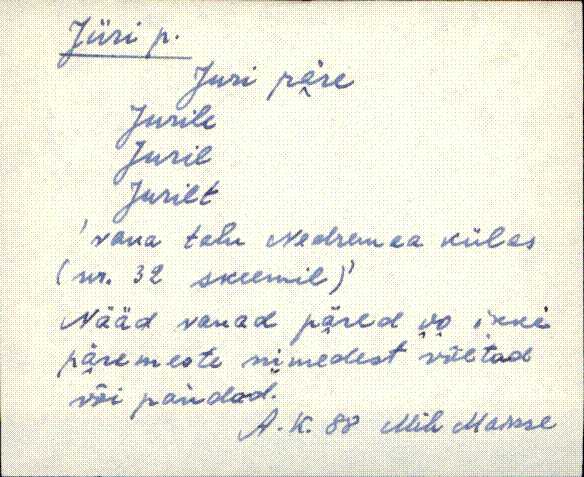 Jüri p.
Juri päre
Jurile
Juril
Jurilt
'vana talu Nedremaa külas
(nr. 32 skeemil)'
Nääd vanad päred vo ikke
päremeste nimedest võetad
või pandad.
A. K. 88 Mih